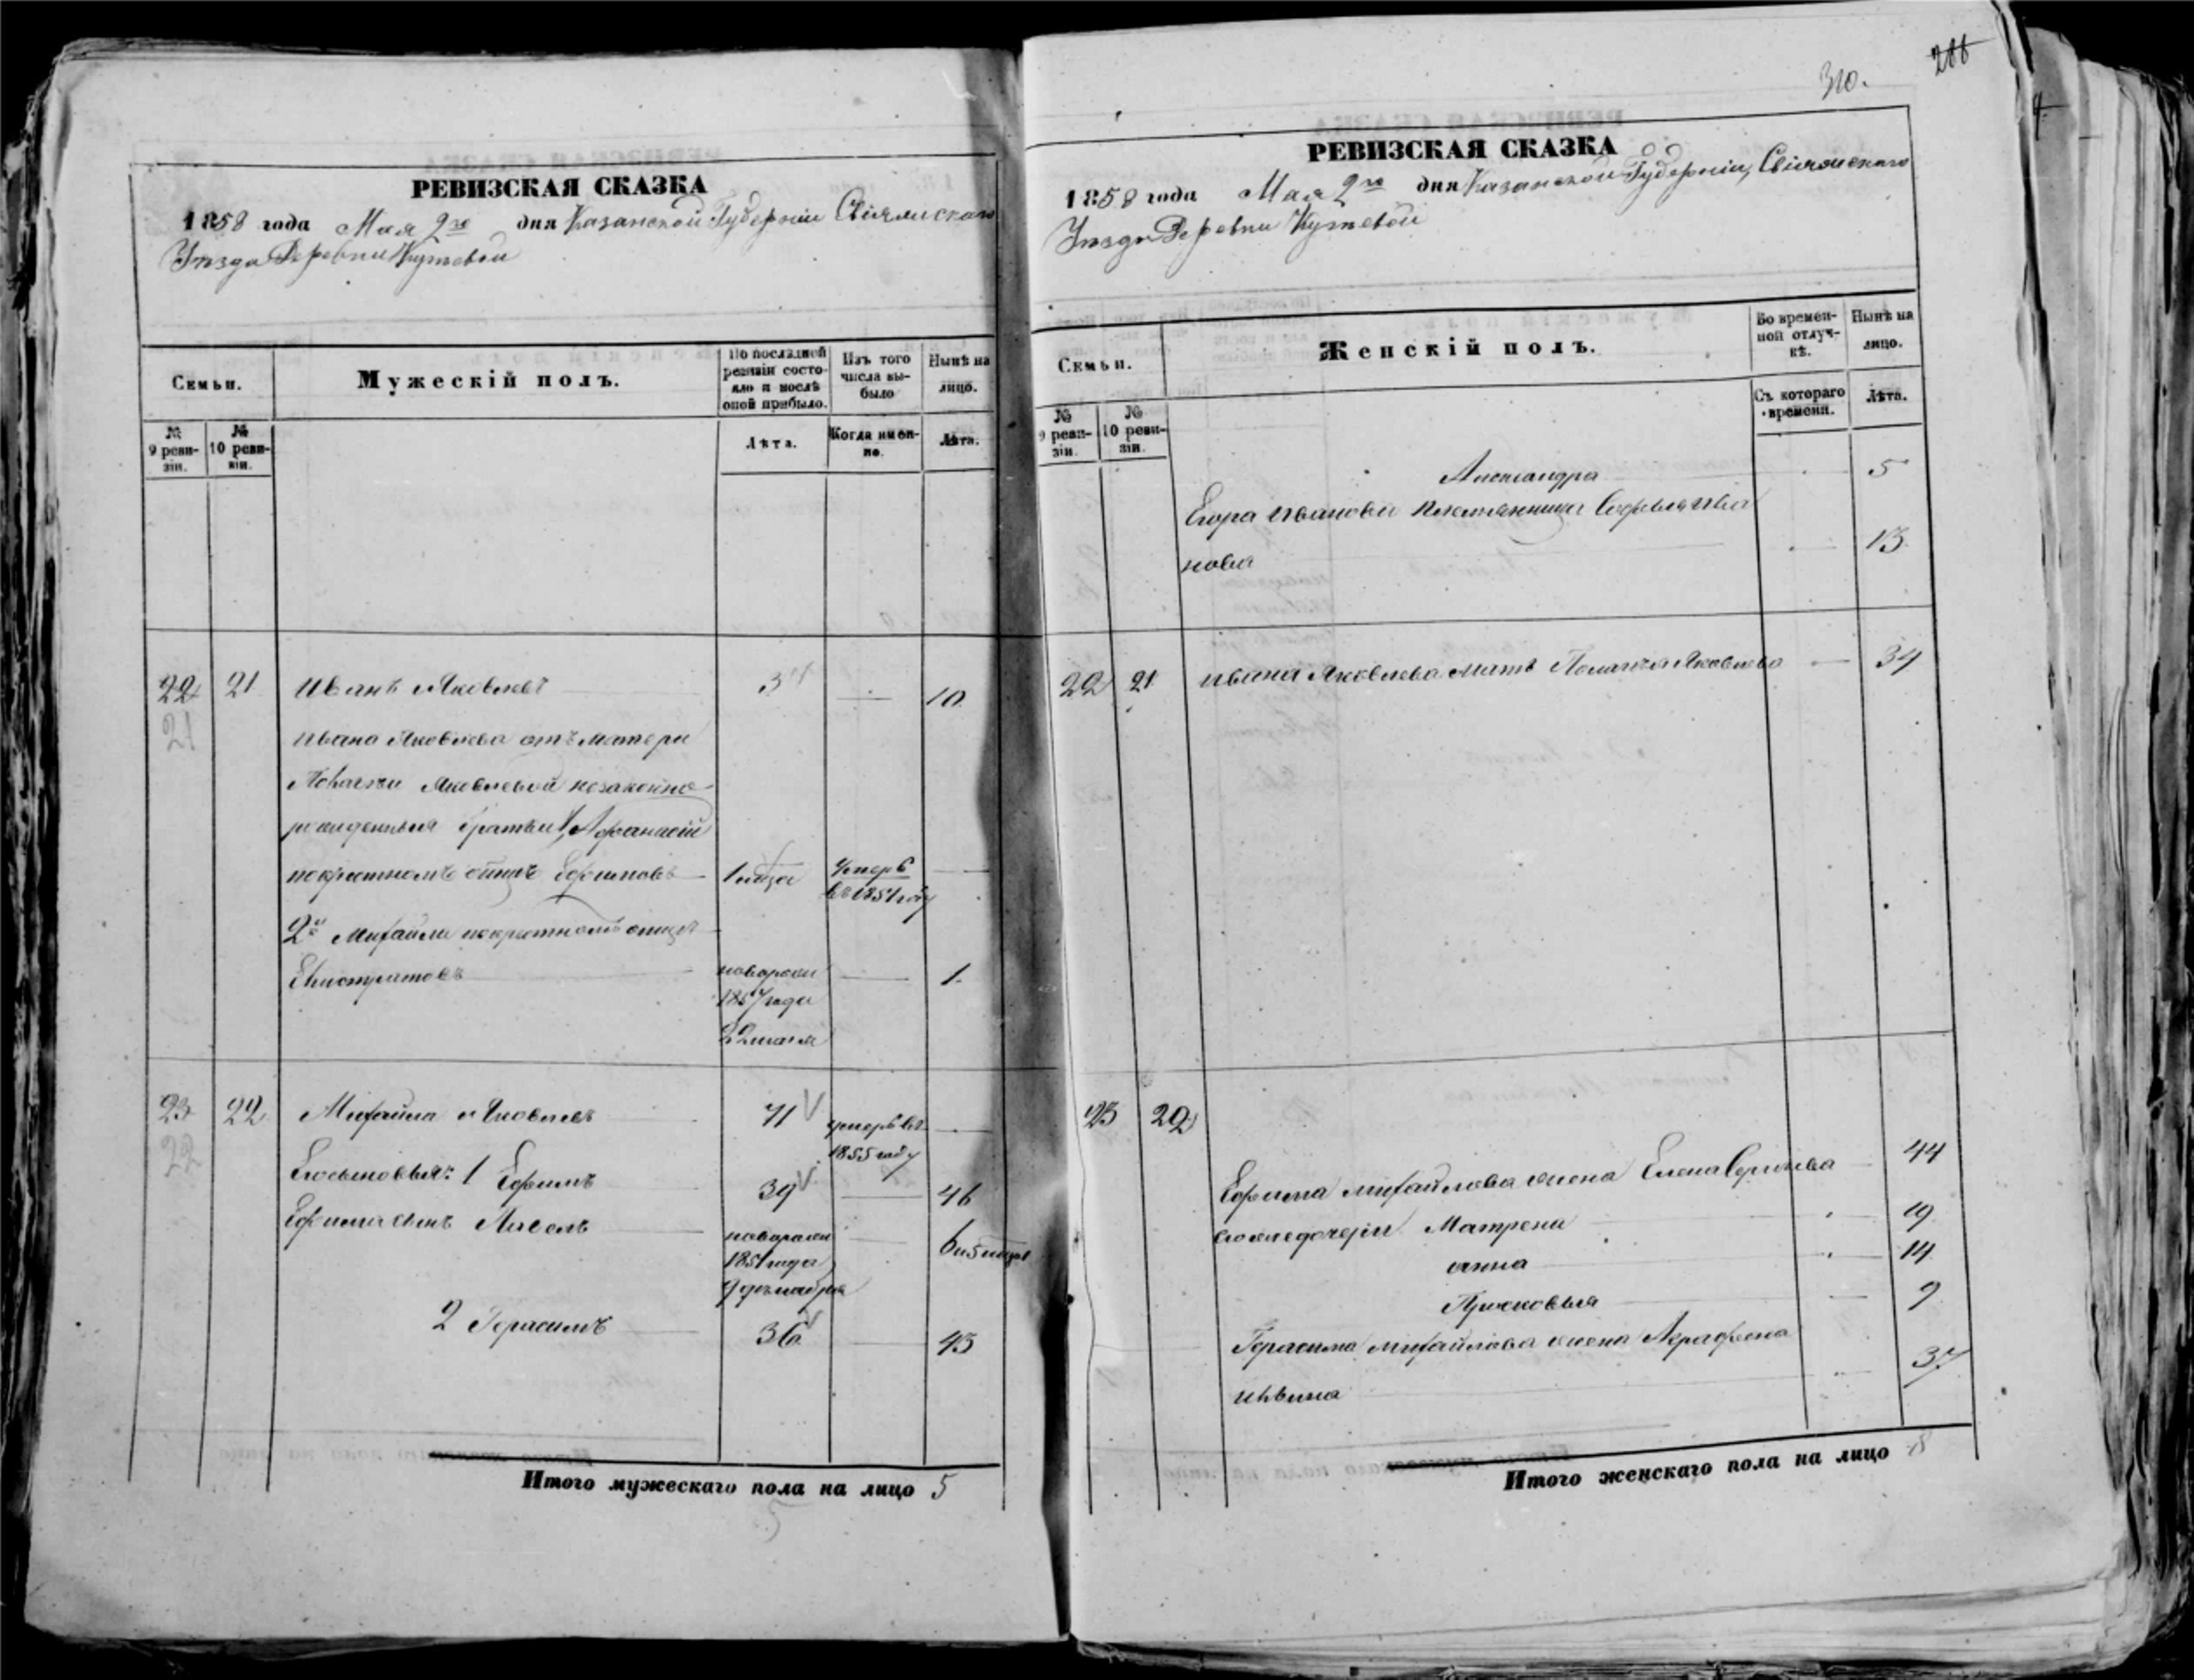 РЕВИЗСКАЯ СКАЗКА
1858 года Мая 2го дня Казанской Губерніи Свіяжскаго
Уѣзда Деревни
Семьи.
Мужескій полъ.
По послѣдней ревизіи состояло и послѣ оной прибыло.
Изъ того числа выбыло
Нынѣ на лицо.
№ 9 ревизіи.
№ 10 ревизіи.
Лѣта.
Когда именно.
Лѣта.
22 21 Иванъ Яковлевъ 3 — 10
21
Ивана Яковлева отъ матери
Яковлевой незаконно-
рожденныя братья 1, Афанасій
по крестномъ отцѣ Ефимовъ 1 умеръ —
въ 1851 году
2й Михайла по крестномъ отцѣ
Евстратовъ новорожд — 1
1857 года
23 22 Михайла Яковлевъ 71 умеръ въ —
1855 году
22
Его сыновья: 1 Ефимъ 39 — 46
Ефима сынъ новорожд — 6 и 5 мцовъ
1851 года
9 декабря
2 Герасимъ 36 — 43
Итого мужескаго пола на лицо 5
5
288
310.
РЕВИЗСКАЯ СКАЗКА
1858 года Мая 2го дня Казанской Губерніи, Свіяжскаго
Уѣзда Деревни
Семьи.
Женскій полъ.
Во временной отлучкѣ.
Нынѣ на лицо.
№ 9 ревизіи.
№ 10 ревизіи.
Съ котораго времени.
Лѣта.
Александра — 5
Егора Иванова племянница Софья Ива
нова — 13
22 21 Ивана Яковлева мать Яковлева — 34
23 22
Ефима Михайлова жена Елена Сергѣева — 44
его же дочери Матрена — 19
Анна — 14
Прасковья — 9
Герасима Михайлова жена Аграфена
— 37
Итого женскаго пола на лицо 8